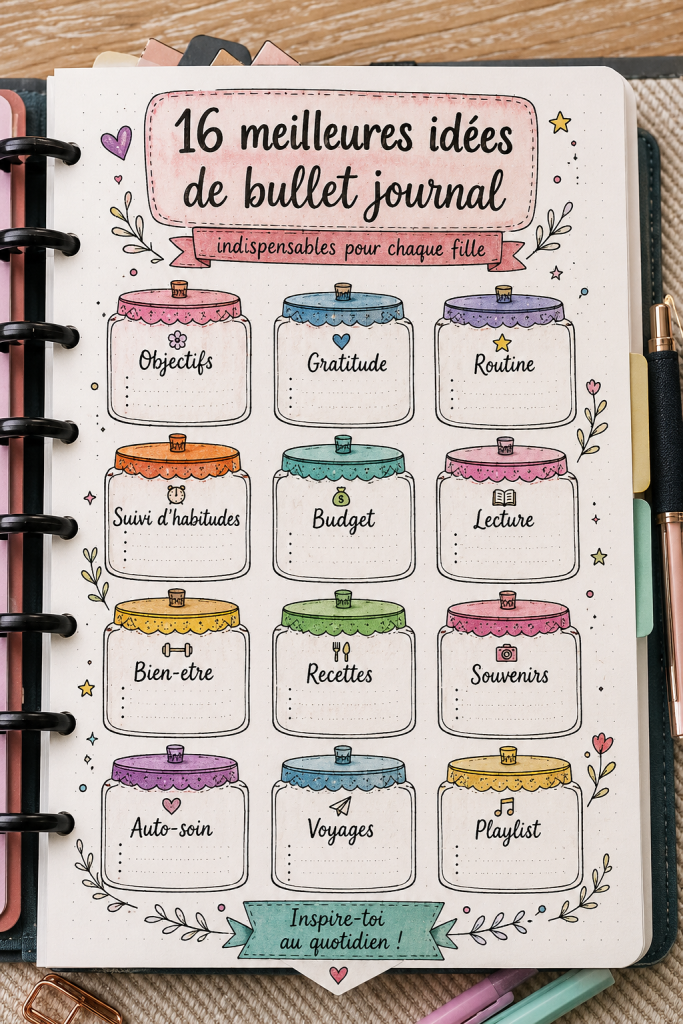 16 meilleures idées
de bullet journal
indispensables pour chaque fille
Objectifs
Gratitude
Routine
Suivi d'habitudes
Budget
Lecture
Bien-etre
Recettes
Souvenirs
Auto-soin
Voyages
Playlist
Inspire-toi
au quotidien !